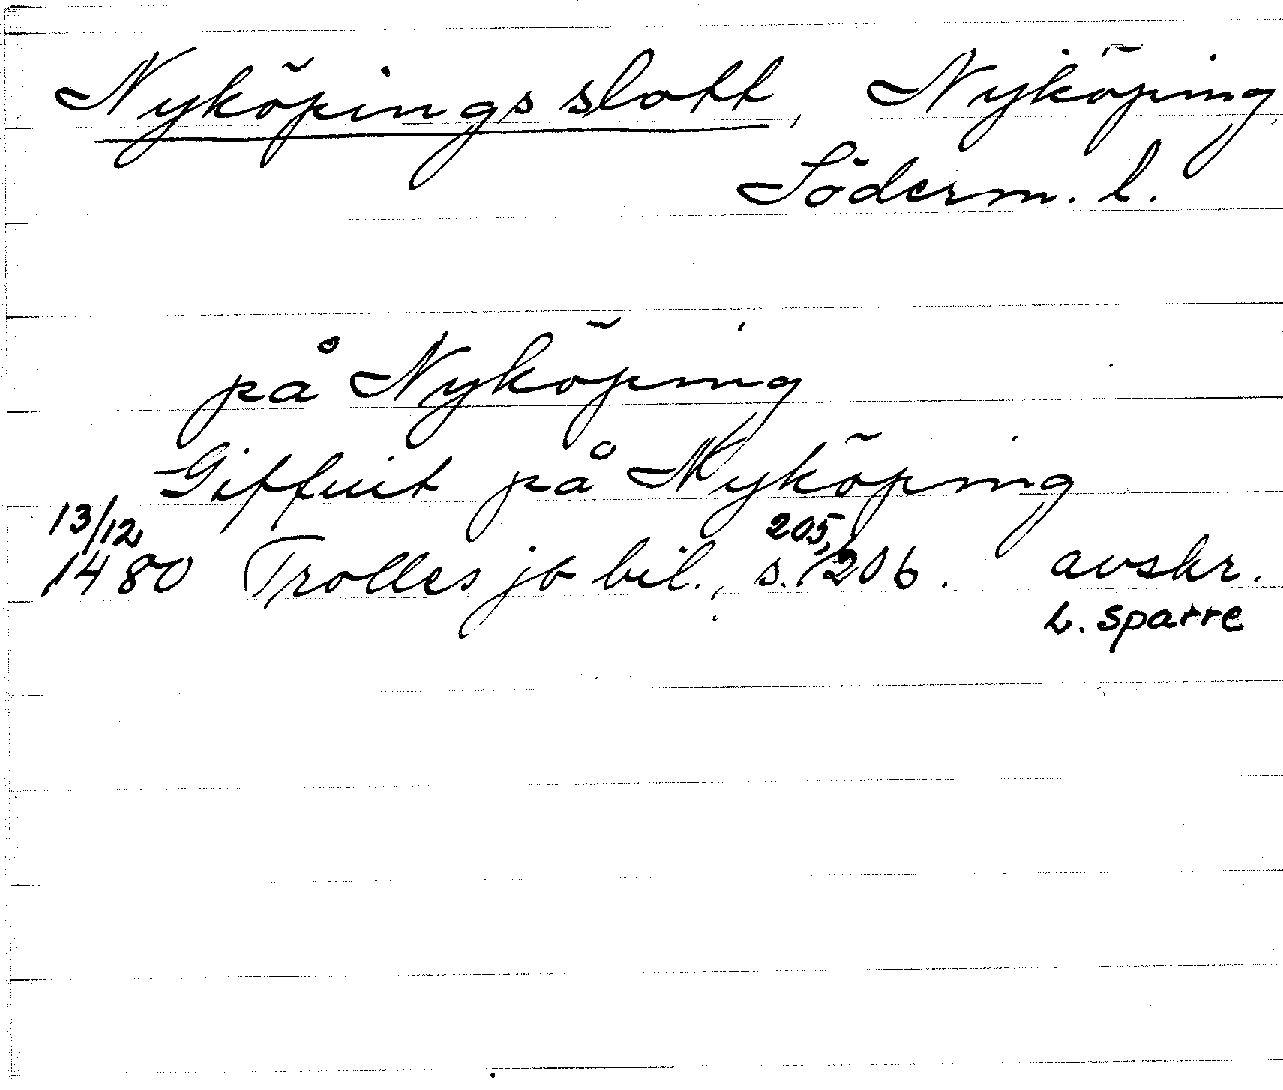 Nyköpings slott, Nyköping
Söderm. l.
på Nyköping
Giffuit på Nyköping
13/12 205,
1480 Trolles jb bil., s. 206. avskr.
L. Sparre